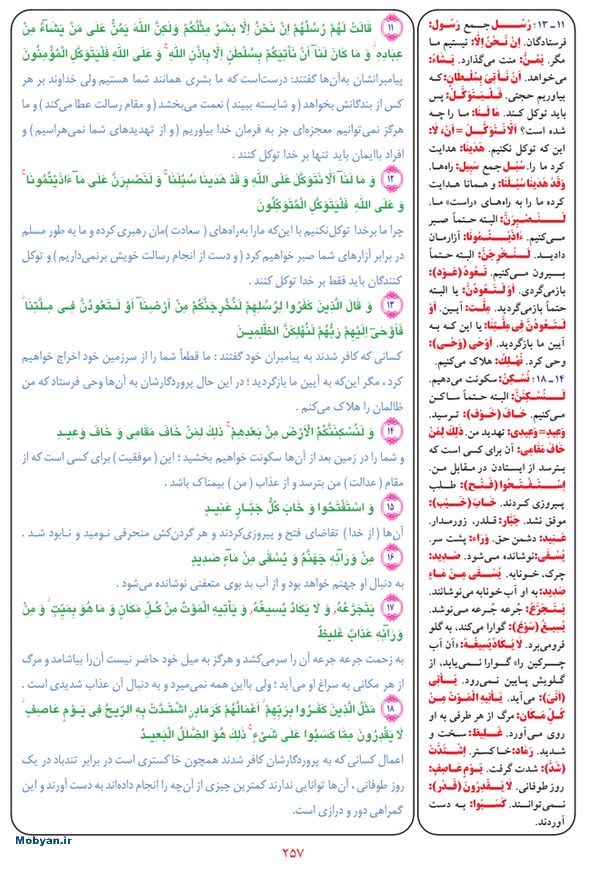 ۱۱ـ۱۳: رُسُل جمع رَسُول:
فرستادگان. اِنْ نَحْنُ اِلّا: نیستیم ما
مگر. یَمُنُّ: منت می‌گذارد. یَشاءُ:
می‌خواهد. اَنْ نَأْتِیَ بِسُلْطانٍ: که
بیاوریم حجتی. فَلْیَتَوَکَّلْ: پس
باید توکل کند. ما لَنا: ما را چه
شده است؟ اَلّا نَتَوَکَّلَ = اَنْ، لا:
این که توکل نکنیم. هَدَینا: هدایت
کرد ما را. سُبُل جمع سَبیل: راه‌ها.
وَ قَدْ هَدَینا سُبُلَنا: و همانا هدایت
کرده ما را به راه‌های «راست» ما.
لَنَصْبِرَنَّ: البته حتماً صبر
می‌کنیم. ءاذَیْتُمُونا: آزارمان
دادید. لَنُخْرِجَنَّ: البته حتماً
بیرون می‌کنیم. تَعُودُ (عَوَدَ):
بازمی‌گردی. اَوْ لَتَعُودُنَّ: یا البته
حتماً بازمی‌گردید. مِلَّت: آیین. اَوْ
لَتَعُودُنَّ فِی مِلَّتِنا: یا این که به
آیین ما بازگردید. اَوْحَی (وَحَیَ):
وحی کرد. نُهْلِکُ: هلاک می‌کنیم.
۱۴ـ۱۸: نُسْکِنُ: سکونت می‌دهیم.
لَنُسْکِنَنَّ: البته حتماً ساکن
می‌کنیم. خافَ (خَوَفَ): ترسید.
وَعِیدِ= وَعِیدِی: تهدید من. ذلِکَ لِمَنْ
خافَ مَقامِی: آن برای کسی است که
بترسد از ایستادن در مقابل من.
اِسْتَفْتَحُوا (فَتَحَ): طلب
پیروزی کردند. خابَ (خَیَبَ):
موفق نشد. جَبّار: قلدر، زورمدار.
عَنِید: دشمن حق. وَراء: پشت سر.
یُسْقی: نوشانده می‌شود. صَدِید:
چرک، خونابه. یُسْقی مِنْ ماءٍ
صَدِید: به او آب خونابه می‌نوشانند.
یَتَجَرَّعُ: جُرعه جُرعه می‌نوشد.
یُسِیغُ (سَوَغَ): گوارا می‌کند، به گلو
فرومی‌برد. لا یَکادُ یُسِیغُهُ: «آن آب
چرکین را» گوارا نمی‌یابد، از
گلویش پایین نمی‌رود. یَأْتی
(اَتَیَ): می‌آید. یَأْتِیهِ الْمَوْتُ مِنْ
کُلِّ مَکان: مرگ از هر طرفی به او
روی می‌آورد. غَلِیظ: سخت و
شدید. رَماد: خاکستر. اِشْتَدَّتْ
(شَدَّ): شدت گرفت. یَوْمٍ عاصِفٍ:
روز طوفانی. لا یَقْدِرُونَ (قَدَرَ):
نمی‌توانند. کَسَبُوا: به دست
آوردند.
۱۱ قالَتْ لَهُمْ رُسُلُهُمْ اِنْ نَحْنُ اِلّا بَشَرٌ مِثْلُکُمْ وَلکِنَّ اللّهَ یَمُنُّ عَلی مَنْ یَشاءُ مِنْ
عِبادِهِ وَ ما کانَ لَنا اَنْ نَأْتِیَکُمْ بِسُلْطنٍ اِلّا بِاِذْنِ اللّهِ وَ عَلَی اللّهِ فَلْیَتَوَکَّلِ الْمُؤْمِنُونَ
پیامبرانشان به‌آن‌ها گفتند: درست‌است که ما بشری همانند شما هستیم ولی خداوند بر هر
کس از بندگانش بخواهد (و شایسته ببیند) نعمت می‌بخشد (و مقام رسالت عطا می‌کند) و ما
هرگز نمی‌توانیم معجزه‌ای جز به فرمان خدا بیاوریم (و از تهدیدهای شما نمی‌هراسیم) و
افراد باایمان باید تنها بر خدا توکل کنند .
۱۲ وَ ما لَنا اَلّا نَتَوَکَّلَ عَلَی اللّهِ وَ قَدْ هَدینا سُبُلَنا وَ لَنَصْبِرَنَّ عَلی ما ءاذَیْتُمُونا
وَ عَلَی اللّهِ فَلْیَتَوَکَّلِ الْمُتَوَکِّلُونَ
چرا ما برخدا توکل‌نکنیم با این‌که ما‌را به‌راه‌های ( سعادت )مان رهبری کرده و ما به طور مسلم
در برابر آزارهای شما صبر خواهیم کرد ( و دست از انجام رسالت خویش برنمی‌داریم ) و توکل
کنندگان باید فقط بر خدا توکل کنند .
۱۳ وَ قالَ الَّذینَ کَفَرُوا لِرُسُلِهِمْ لَنُخْرِجَنَّکُمْ مِنْ اَرْضِنا اَوْ لَتَعُودُنَّ فی مِلَّتِنا
فَاَوْحی اِلَیْهِمْ رَبُّهُمْ لَنُهْلِکَنَّ الظّلِمینَ
کسانی که کافر شدند به پیامبران خود گفتند : ما قطعاً شما را از سرزمین خود اخراج خواهیم
کرد ، مگر این‌که به آیین ما بازگردید ؛ در این حال پروردگارشان به آن‌ها وحی فرستاد که من
ظالمان را هلاک می‌کنم .
۱۴ وَ لَنُسْکِنَنَّکُمُ الْاَرْضَ مِنْ بَعْدِهِمْ ذلِکَ لِمَنْ خافَ مَقامی وَ خافَ وَعیدِ
و شما را در زمین بعد از آن‌ها سکونت خواهیم بخشید ؛ این ( موفقیت ) برای کسی است که از
مقام ( عدالت ) من بترسد و از عذاب ( من ) بیمناک باشد .
۱۵ وَ اسْتَفْتَحُوا وَ خابَ کُلُّ جَبّارٍ عَنیدٍ
آن‌ها ( از خدا ) تقاضای فتح و پیروزی‌کردند و هر گردن‌کش منحرفی نومید و نابود شد .
۱۶ مِنْ وَرائِهِ جَهَنَّمُ وَ یُسْقی مِنْ ماءٍ صَدیدٍ
به دنبال او جهنم خواهد بود و از آب بد بوی متعفنی نوشانده می‌شود .
۱۷ یَتَجَرَّعُهُ وَ لا یَکادُ یُسیغُهُ وَ یَأْتیهِ الْمَوْتُ مِنْ کُلِّ مَکانٍ وَ ما هُوَ بِمَیِّتٍ وَ مِنْ
وَرائِهِ عَذابٌ غَلیظٌ
به زحمت جرعه جرعه آن را سرمی‌کشد و هرگز به میل خود حاضر نیست آن‌را بیاشامد و مرگ
از هر مکانی به سراغ او می‌آید ؛ ولی بااین همه نمی‌میرد و به دنبال آن عذاب شدیدی است .
۱۸ مَثَلُ الَّذینَ کَفَرُوا بِرَبِّهِمْ اَعْمالُهُمْ کَرَمادٍ اشْتَدَّتْ بِهِ الرّیحُ فی یَوْمٍ عاصِفٍ
لا یَقْدِرُونَ مِمّا کَسَبُوا عَلی شَیْءٍ ذلِکَ هُوَ الضَّللُ الْبَعیدُ
اعمال کسانی که به پروردگارشان کافر شدند همچون خاکستری است در برابر تندباد در یک
روز طوفانی ، آن‌ها توانایی ندارند کمترین چیزی از آن‌چه را انجام داده‌اند به دست آورند و این
گمراهی دور و درازی است.
Mobyan.ir
۲۵۷